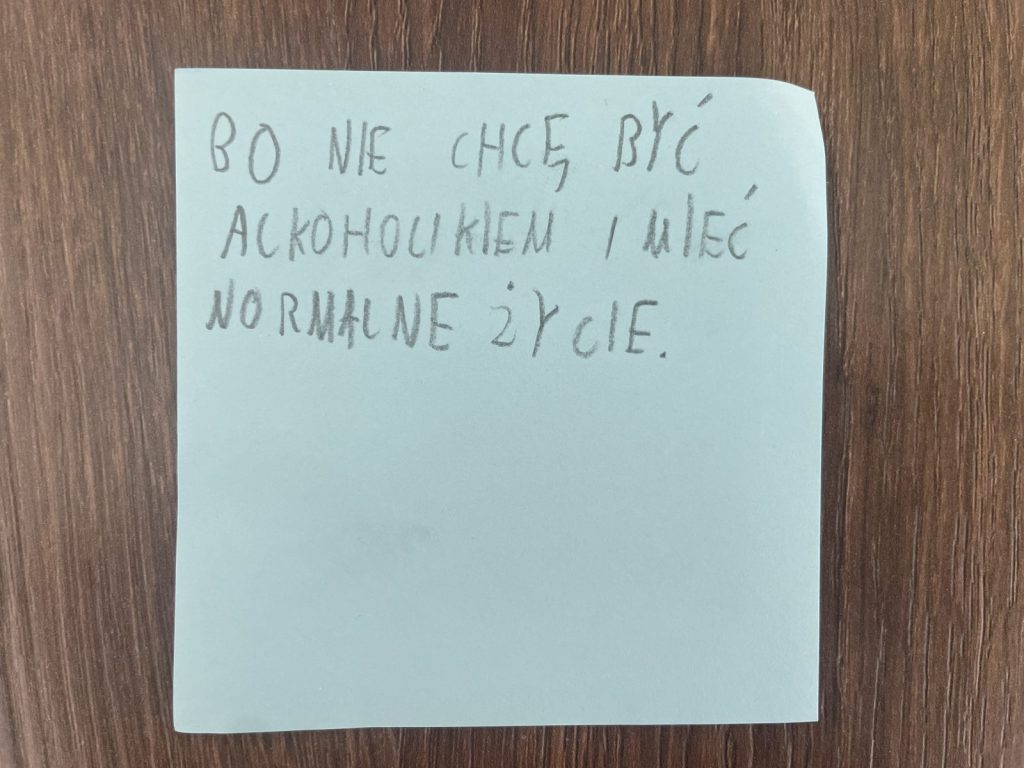 BO NIE CHCĘ BYĆ
ALKOHOLIKIEM I MIEĆ
NORMALNE ŻYCIE.